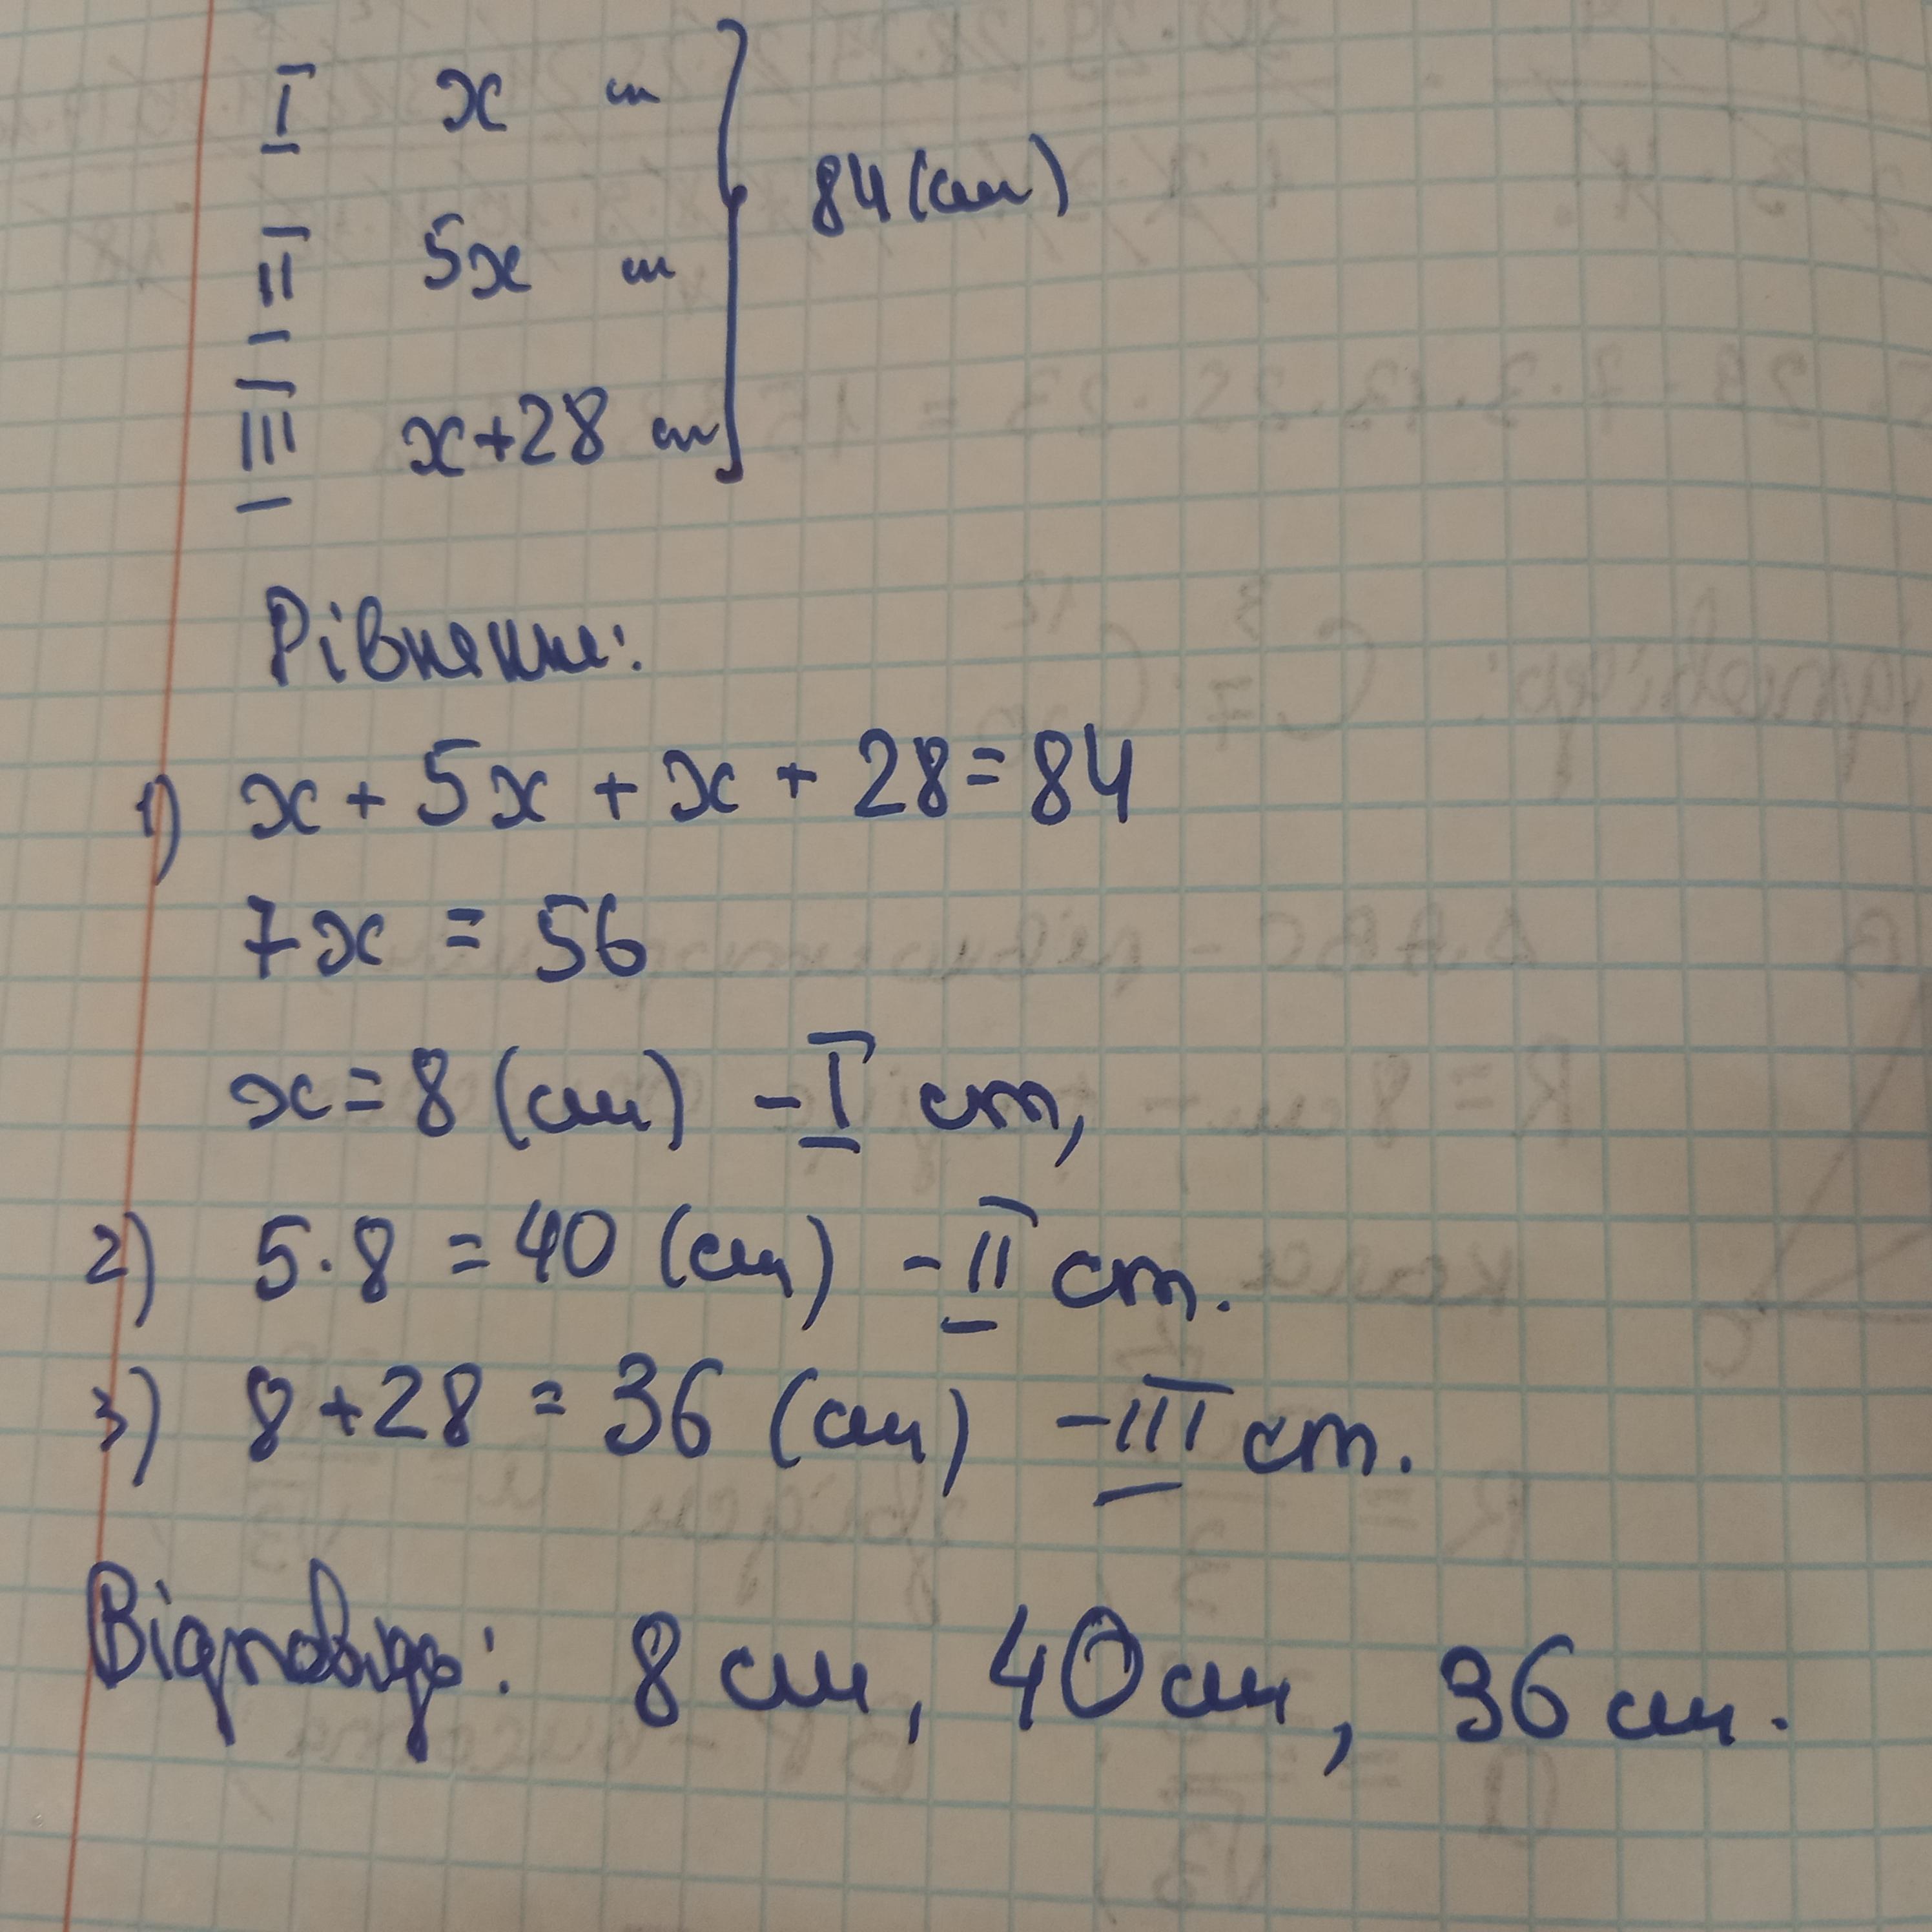 I x см
84 (см)
II 5x см
III x+28 см
Рівняння:
1) x + 5x + x + 28 = 84
7x = 56
x = 8 (см) - I ст,
2) 5·8 = 40 (см) - II ст.
3) 8+28 = 36 (см) - III ст.
Відповідь: 8 см, 40 см, 36 см.